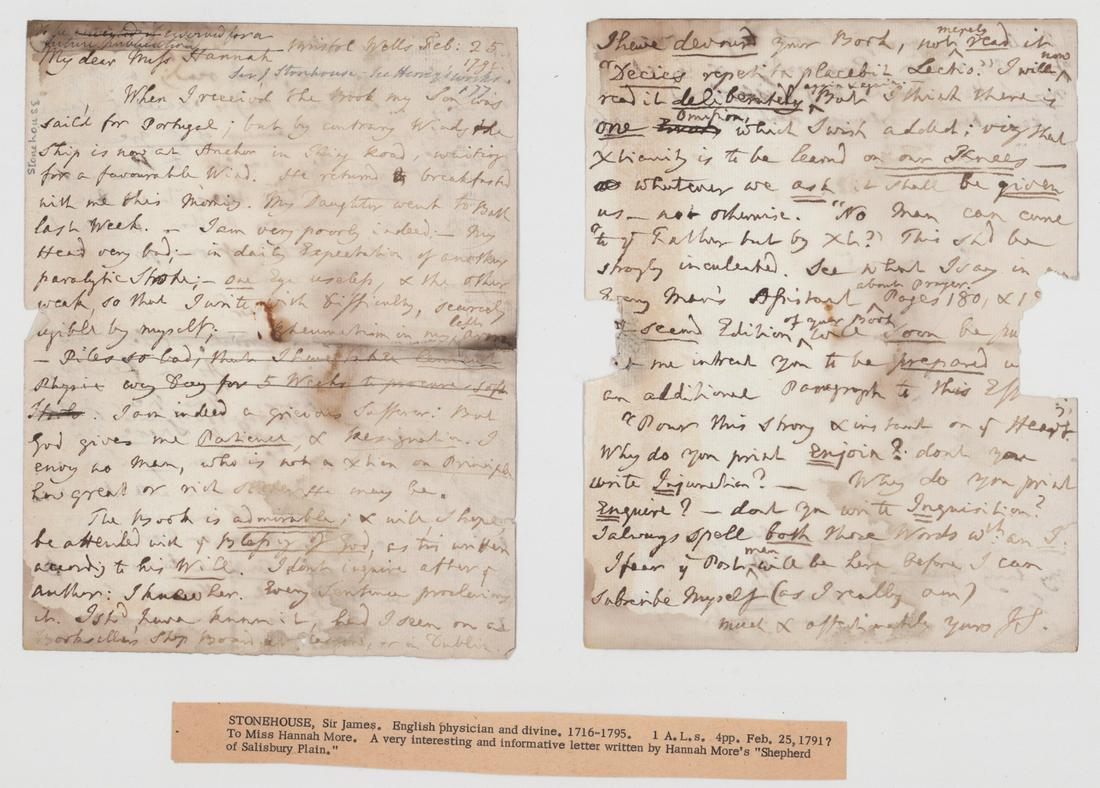 to be reserved for a
future publication
Bristol Wells Feb: 25.
1791
My dear Miss Hannah
Sir J Stonhouse. See Hannah's works.
Stonehouse
When I receiv'd the Book my Son was
sail'd for Portugal; but by contrary Winds, the
Ship is now at Anchor in King Road, waiting
for a favourable Wind. He return'd & breakfasted
with me this Morning. My Daughter went to Bath
last Week. — I am very poorly indeed:— My
Head very bad;— in daily Expectation of another
paralytic Stroke;— one Eye useless, & the other
weak, so that I write with Difficulty, scarcely
legible by myself; — Rheumatism in my left Arm
— Piles so bad, that I have
Physic every Day for 5 Weeks to procure soft
Stools. I am indeed a grievous Sufferer: But
God gives me Patience, & Resignation. I
envy no Man, who is not a Xtian on Principle
how great or rich soever He may be.
The Book is admirable; & will I hope
be attended with y Blessing of God, as tis written
according to his Will. I dont inquire after y
Author: I know her. Every Sentence proclaims
it. I shd have known it, had I seen on a
Booksellers Shop Board at, or in Dublin.
I have devour'd your Book, not merely read it
"Decies repetita placebit Lectio." I will now
read it deliberately again & again. But I think there is
one Omission, which I wish added; viz; that
Xtianity is to be learnd on our Knees —
whatever we ask it shall be given
us — not otherwise. "No Man can come
"to y Father but by Xt." This shd be
strongly inculcated. See what I say in
Every Man's Assistant about Prayer. Pages 180, & 1
second Edition of your Book will soon be
me intreat you to be prepared
an additional Paragraph to this Eff
"Pour this strong & instant on y Heart
Why do you print Enjoin? dont you
write Injunction? — Why do you print
Enquire? — dont you write Inquisition?
I always spell both those Words wth an I.
I fear y Postman will be here before I can
subscribe Myself (as I really am)
much & affectionately yours JS.
STONEHOUSE, Sir James. English physician and divine. 1716-1795. 1 A.L.s. 4pp. Feb. 25, 1791?
To Miss Hannah More. A very interesting and informative letter written by Hannah More's "Shepherd
of Salisbury Plain."